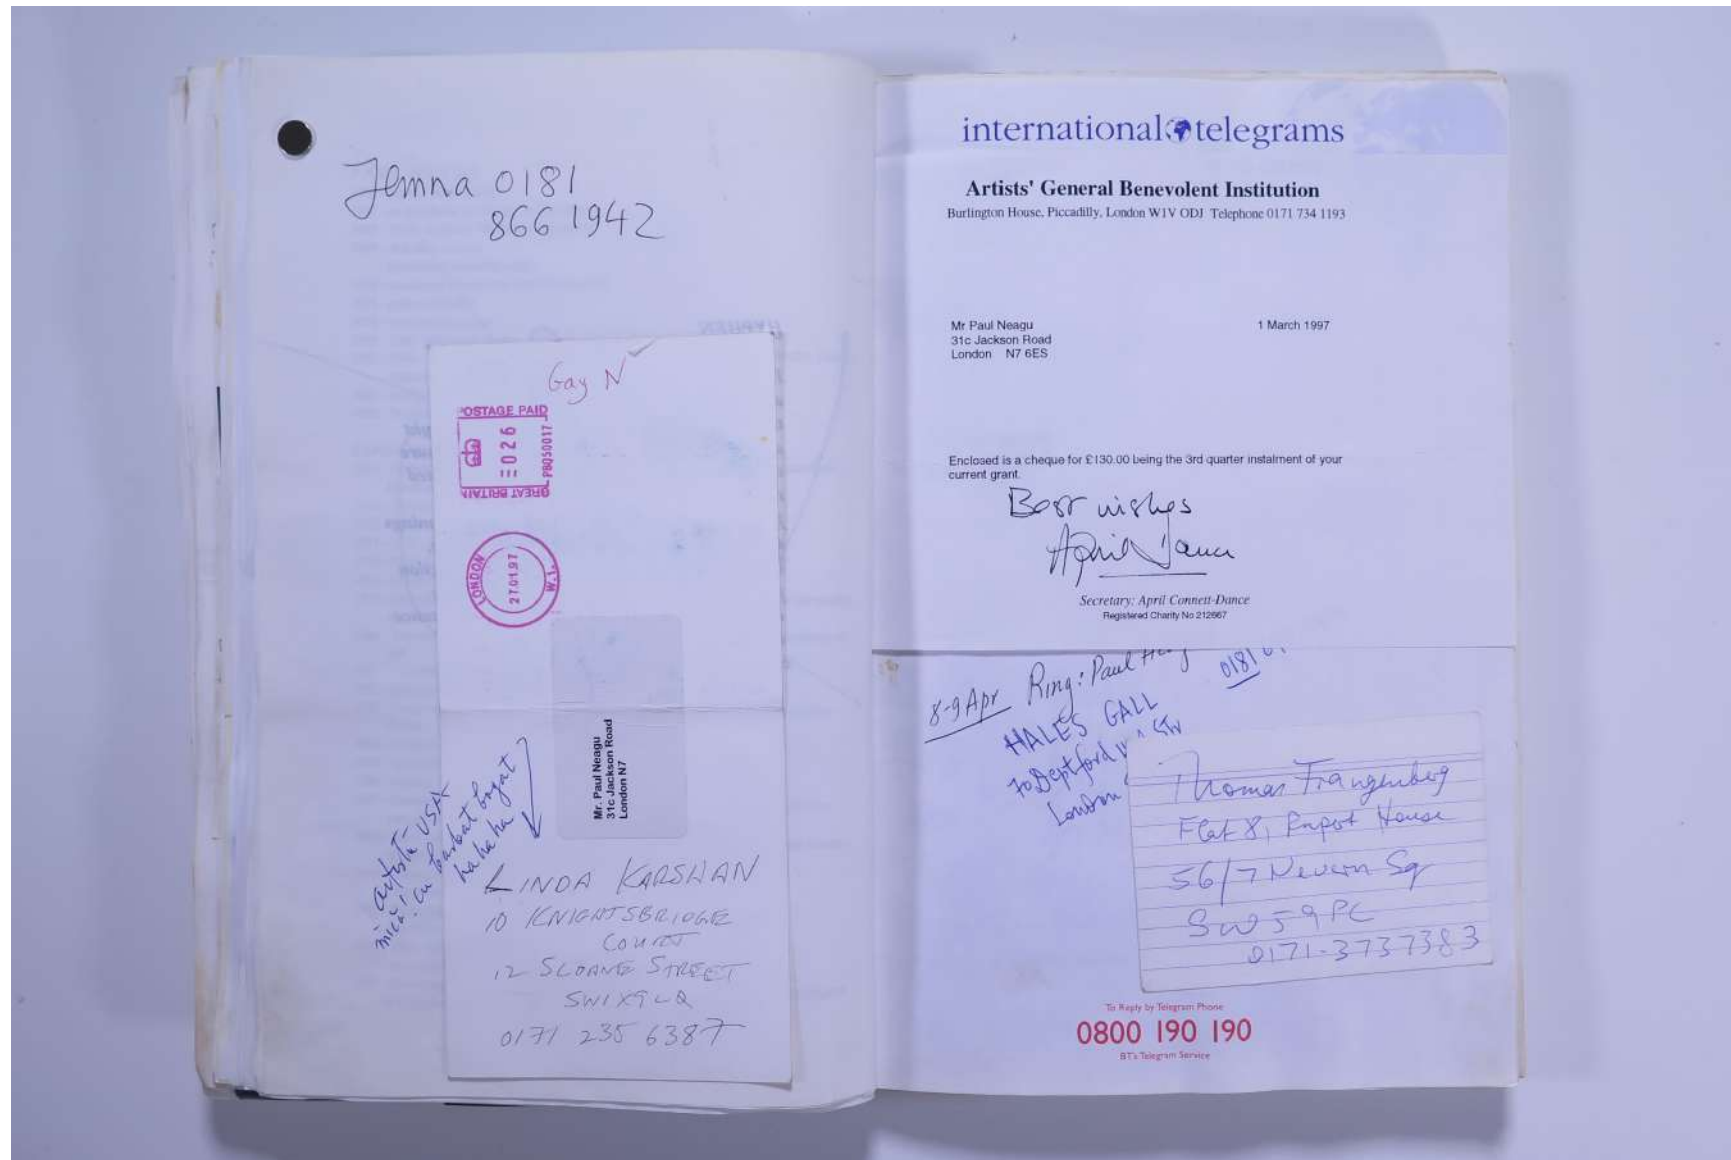 Jemna 0181
866 1942
Gay N
POSTAGE PAID
026
PBQ50017
GREAT BRITAIN
LONDON
27.01.97
W.1.
Mr. Paul Neagu
31c Jackson Road
London N7
artistă USA
mică! cu barbat bogat
ha ha ha
LINDA KARSHAN
10 KNIGHTSBRIDGE
COURT
12 SLOANE STREET
SW1X9LQ
0171 235 6387
international telegrams
Artists' General Benevolent Institution
Burlington House, Piccadilly, London W1V ODJ Telephone 0171 734 1193
Mr Paul Neagu
1 March 1997
31c Jackson Road
London N7 6ES
Enclosed is a cheque for £130.00 being the 3rd quarter instalment of your
current grant.
Best wishes
April Dance
Secretary: April Connett-Dance
Registered Charity No 212667
8-9 Apr Ring: Paul
0181
HALES GALL
70 Deptford
London
Thomas Frangenberg
Flat 8, Rupert House
56/7 Nevern Sq
SW5 9PC
0171-3737383
To Reply by Telegram Phone
0800 190 190
BT's Telegram Service